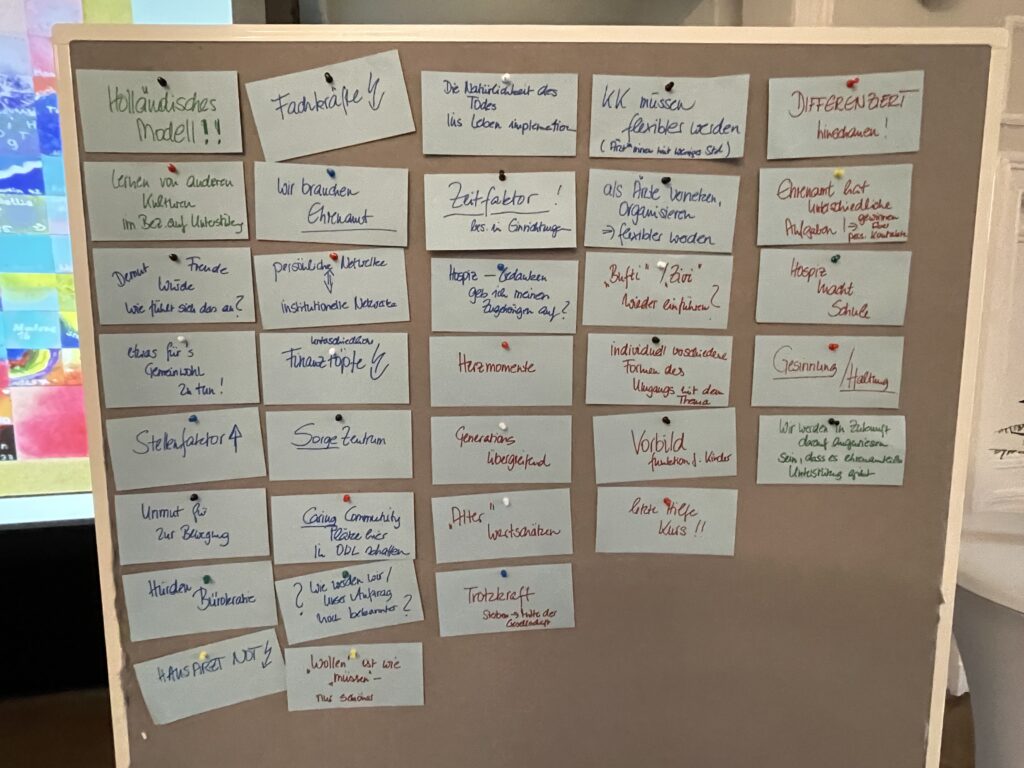 Holländisches
Modell!!
Fachkräfte
Die Natürlichkeit des
Todes
ins Leben
KK müssen
flexibler werden
DIFFERENZIERT
hinschauen!
Lernen von anderen
Kulturen
im Bez. auf Unterstützung
Wir brauchen
Ehrenamt
Zeitfaktor!
bes. in Einrichtungen
als Ärzte vernetzen,
Organisieren
⇒ flexibler werden
Ehrenamt hat
Unterschiedliche
Aufgaben! → gewinnen
über
pers. Kontakte
Demut Freude
Würde
Wie fühlt sich das an?
persönliche Netwerke
↕
institutionelle Netwerke
Hospiz – Gedanken
geb ich meinen
Zugehörigen auf?
„Bufti" / „Zivi"
wieder einführen?
Hospiz
macht
Schule
etwas für's
Gemeinwohl
zu tun!
unterschiedliche
Finanztöpfe
Herzmomente
individuell verschiedene
Formen des
Umgangs mit dem
Thema
Gesinnung
/Haltung
Stellenfaktor ↑
Sorge Zentrum
Generations
übergreifend
Vorbild
funktion f. Kinder
Wir werden in Zukunft
darauf angewiesen
sein, dass es
Unterstützung gibt
Unmut für
zur Bewegung
Caring Community
Plätze hier
in ODL schaffen
„Alter"
Wertschätzen
letzte Hilfe
Kurs!!
Hürden
Bürokratie
? Wie werden wir /
unser Auftrag
noch bekannter?
Trotzkraft
Sterben → mitte der
Gesellschaft
HAUSARZT NOT
„Wollen" ist wie
„müssen" –
nur schöner